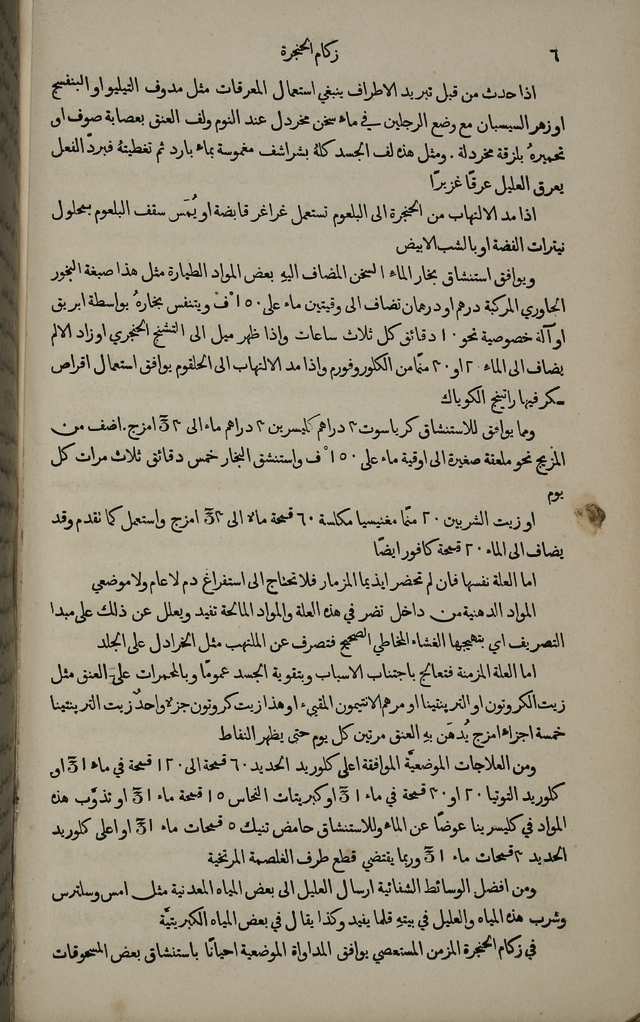 ٦ زكام الحنجرة
اذا حدث من قبل تبريد الاطراف ينبغي استعمال المعرقات مثل مذوف التيليو او البنفسج
او زهر السيسبان مع وضع الرجلين في ماء سخن مخردل عند النوم ولف العنق بعصابة صوف او
تحميره بلزقة مخردلة . ومثل هذه لف الجسد كله بشراشف مغموسة بماء بارد ثم تغطيته فبردّ الفعل
يعرق العليل عرقًا غزيرًا
اذا مد الالتهاب من الحنجرة الى البلعوم تستعمل غراغر قابضة او يُمَس سقف البلعوم بمحلول
نيترات الفضة او بالشب الابيض
ويوافق استنشاق بخار الماء السخن المضاف اليه بعض المواد الطيارة مثل هذا صبغة البخور
الجاوري المركبة درهم او درهمان تضاف الى وقيتين ماء على ١٥٠°ف ويتنفس بخاره بواسطة ابريق
او آلة خصوصية نحو ١٠ دقائق كل ثلاث ساعات واذا ظهر ميل الى التشنج الحنجري او زاد الالم
يضاف الى الماء ٢٠ او ٣٠ منًّا من الكلوروفورم واذا مد الالتهاب الى الحلقوم يوافق استعمال اقراص
سكر فيها راتينج الكوباك
ومما يوافق للاستنشاق كرياسوت ٣ دراهم كليسرين ٣ دراهم ماء الى ℥٣ امزج. اضف من
المزيج نحو ملعقة صغيرة الى اوقية ماء على ١٥٠°ف واستنشق البخار خمس دقائق ثلاث مرات كل
يوم
او زيت الشربين ٢٠ منًّا مغنيسيا مكلسة ٦٠ قمحة ماء الى ℥٣ امزج واستعمل كما تقدم وقد
يضاف الى الماء ٢٠ قمحة كافور ايضًا
اما العلة نفسها فان لم تحضر ايذيما المزمار فلا تحتاج الى استفراغ دم لا عام ولا موضعي
المواد الدهنية من داخل تضر في هذه العلة والمواد المالحة تفيد ويعلل عن ذلك على مبدا
التصريف اي بتهيجها الغشاء المخاطي الصحيح فتصرف عن الملتهب مثل الخرادل على الجلد
اما العلة المزمنة فتعالج باجتناب الاسباب وبتقوية الجسد عمومًا وبالمحمرات على العنق مثل
زيت الكروتون او التربنتينا او مرهم الانتيمون المقيء او هذا زيت كروتون جزء واحدٌ زيت التربنتينا
خمسة اجزاء امزج يُدهَن به العنق مرتين كل يوم حتى يظهر النفاط
ومن العلاجات الموضعيَّة الموافقة اعلى كلوريد الحديد ٦٠ قمحة الى ١٢٠ قمحة في ماء ℥١ او
كلوريد التوتيا ٢٠ او ٣٠ قمحة في ماء ℥١ او كبريتات النحاس ١٥ قمحة ماء ℥١ او تذوَّب هذه
المواد في كليسرينا عوضًا عن الماء وللاستنشاق حامض تنيك ٥ قمحات ماء ℥١ او اعلى كلوريد
الحديد ٣ قمحات ماء ℥١ وربما يقتضي قطع طرف الغلصمة المرتخية
ومن افضل الوسائط الشفائية ارسال العليل الى بعض المياه المعدنية مثل امس وسلترس
وشرب هذه المياه والعليل في بيته قلما يفيد وكذا يقال في بعض المياه الكبريتيَّة
في زكام الحنجرة المزمن المستعصي يوافق المداواة الموضعية احيانًا باستنشاق بعض المسحوقات